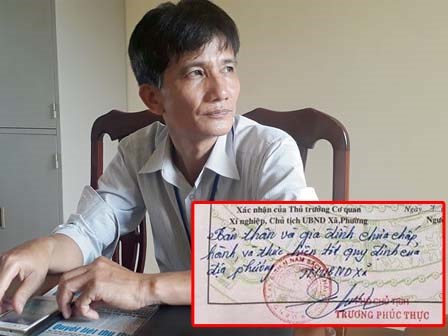 Xác nhận của Thủ trưởng Cơ quan
Xí nghiệp, Chủ tịch UBND Xã, Phường
Ngày
Bản thân và gia đình chưa chấp
hành và thực hiện tốt quy định của
địa phương.
TM UBND Xã
CHỦ TỊCH
TRƯƠNG PHÚC THỰC